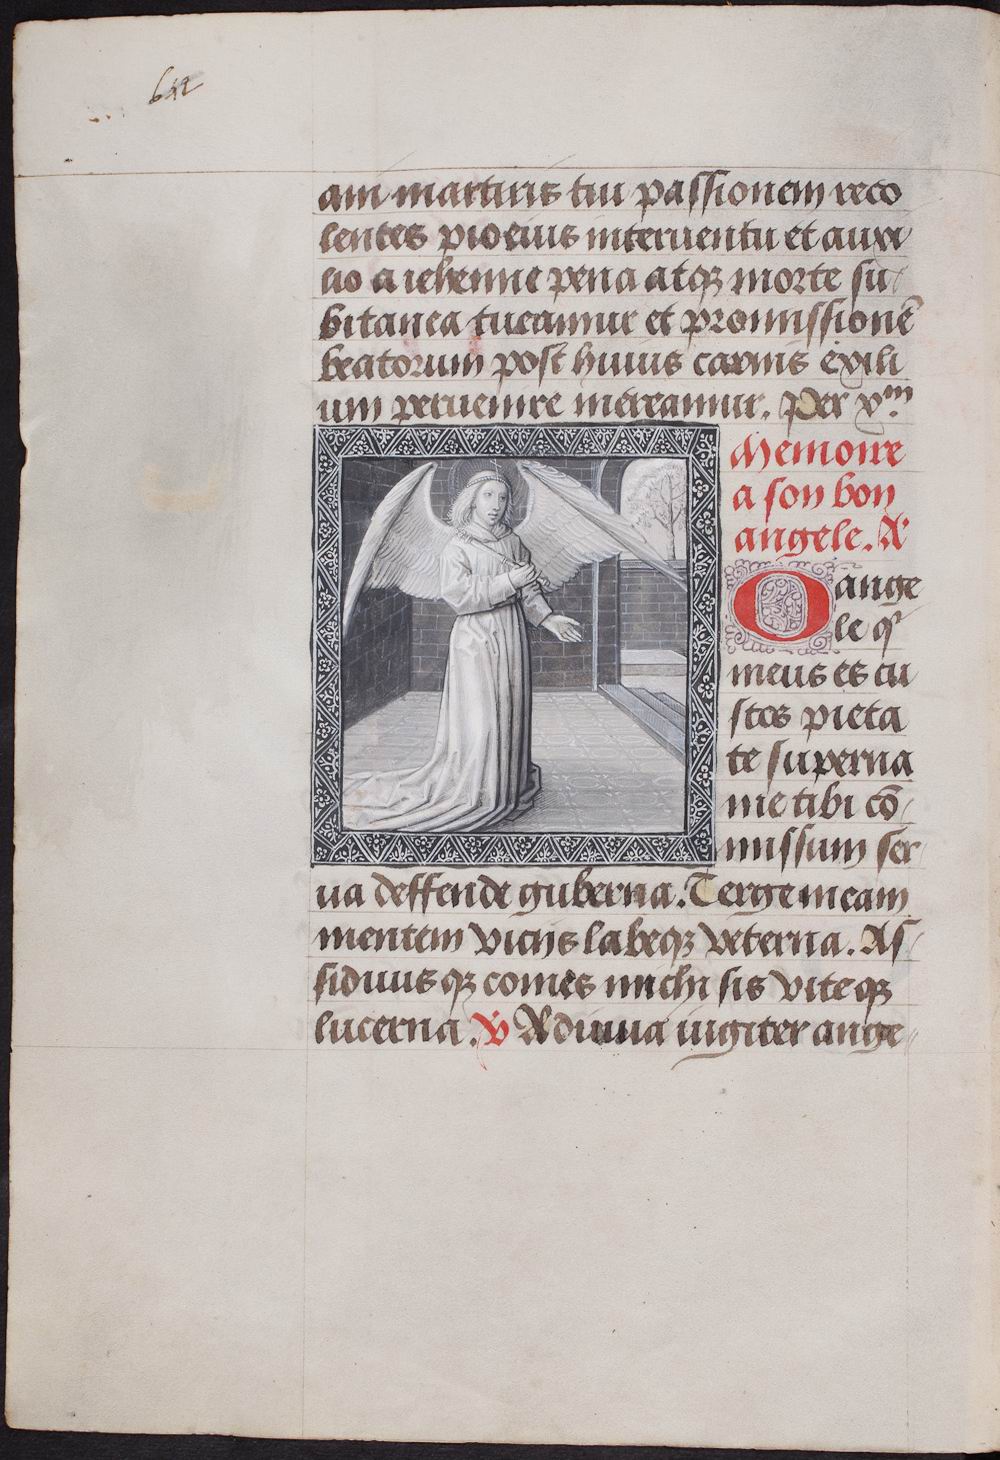 am martiris tui passionem reco
lentes pio eius interuentu et auxi
lio a iehenne pena atqꝫ morte su
bitanea tueamur et promissionē
beatorum post huius carnis exili
um peruenire mereamur. Per xᵐ
Memoire
a son bon
angele. Aⁿ
O ange
le qⁱ
meus es cu
stos pieta
te superna
me tibi cō
missum ser
ua deffende guberna. Terge meam
mentem vicijs labeqꝫ veterna. As
siduus qꝫ comes michi sis viteqꝫ
lucerna. V̄ Adiuua iugiter ange